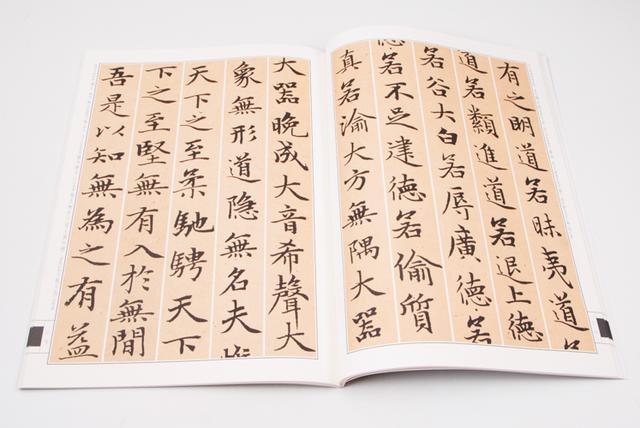 有之明道若昧夷道
道若類進道若退上德
若谷大白若辱廣德若
若不足建德若偷質
真若渝大方無隅大器
大器晚成大音希聲大
象無形道隐無名夫
天下之至柔馳騁天下
下之至堅無有入於無間
吾是以知無為之有益